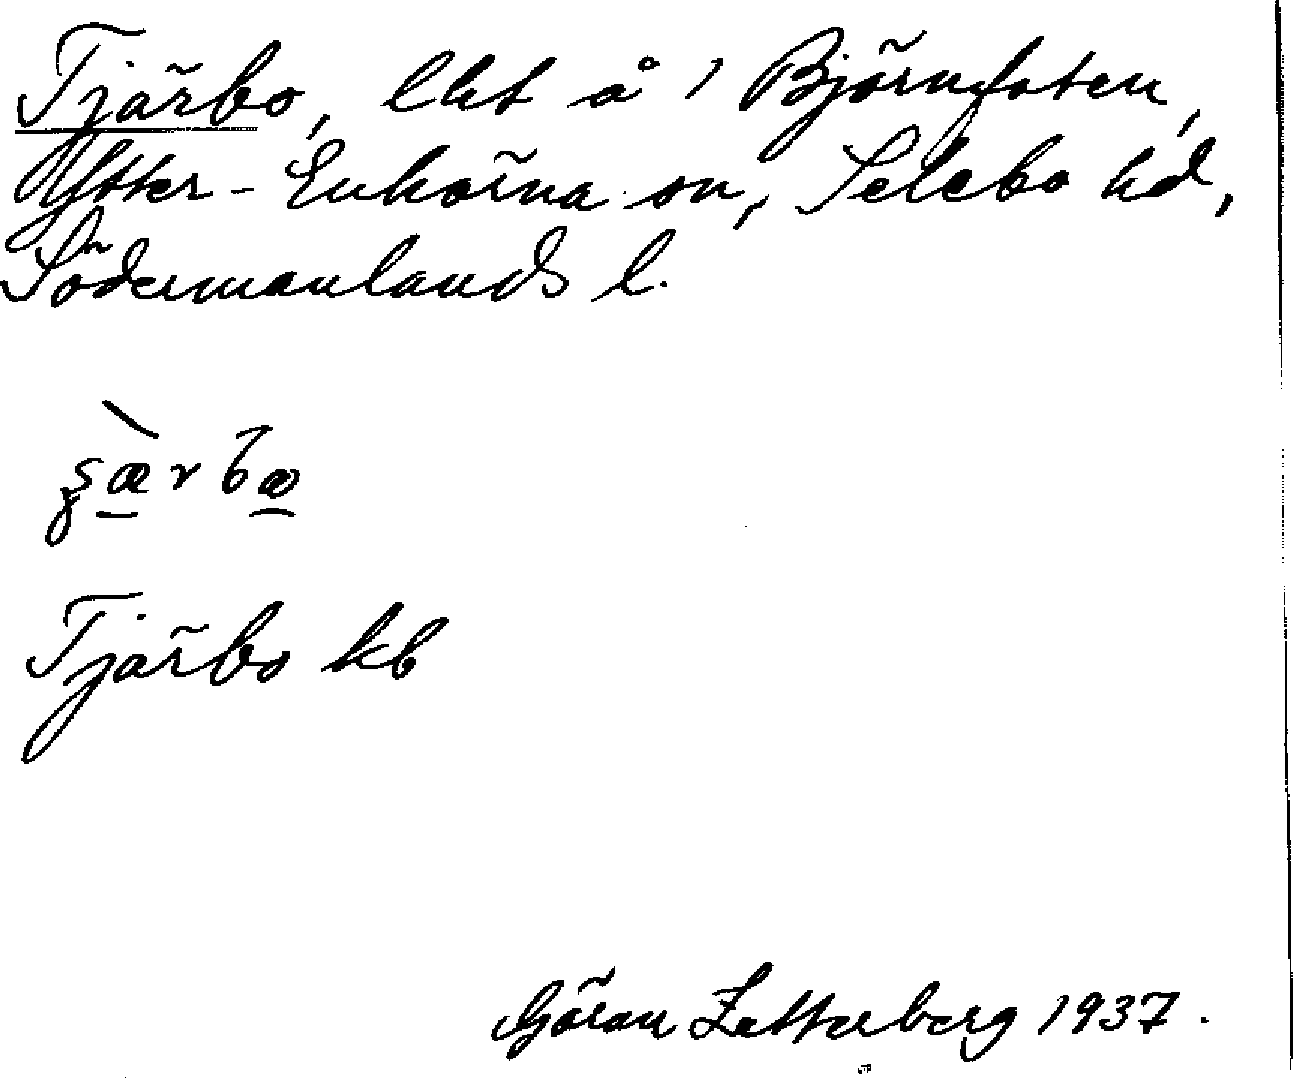 Tjärbo, lht å 1 Björnfoten,
Ytter-Enhörna sn, Selebo hd,
Södermanlands l.
Tjärbo kb
Göran Zetterberg 1937.